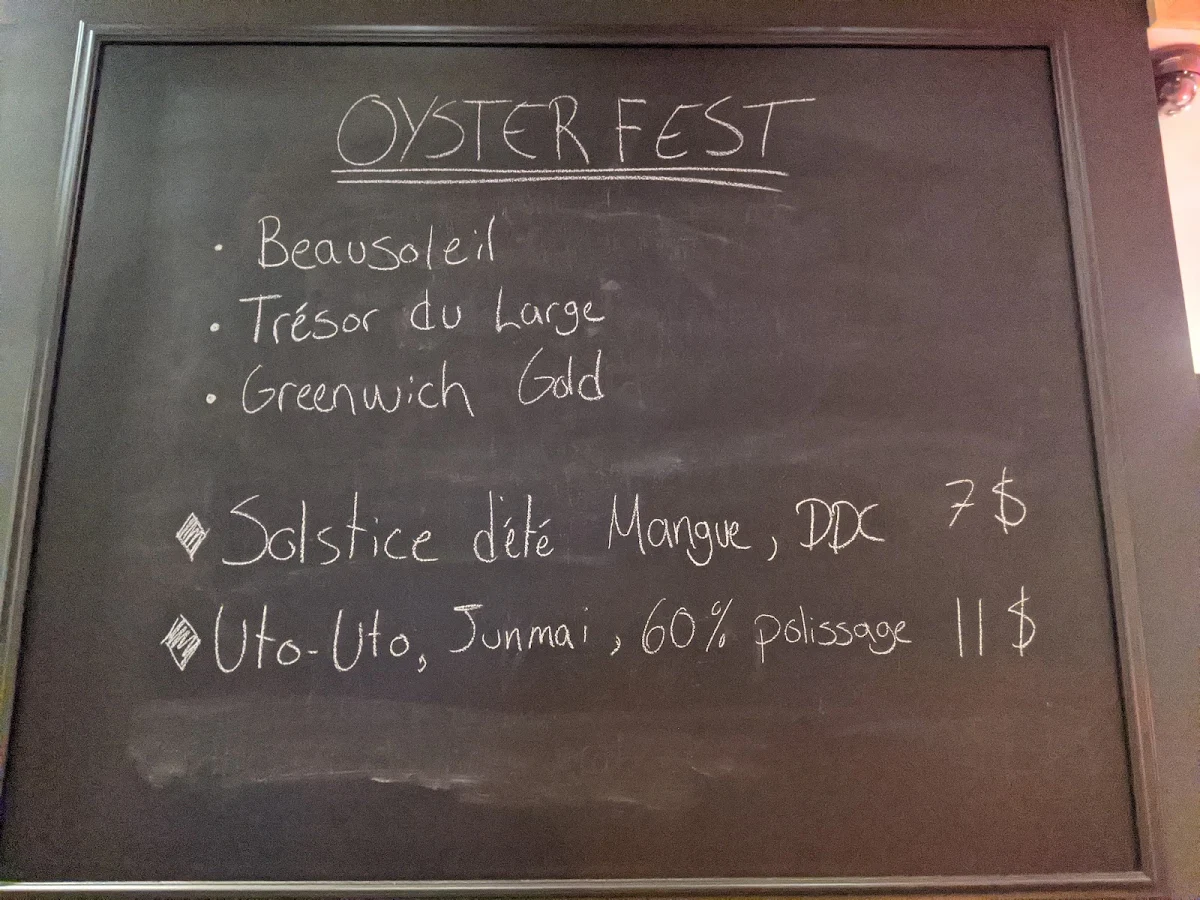 OYSTER FEST
· Beausoleil
· Trésor du Large
· Greenwich Gold
♦ Solstice d'été Mangue, DDC 7$
♦ Uto-Uto, Junmai, 60% polissage 11$